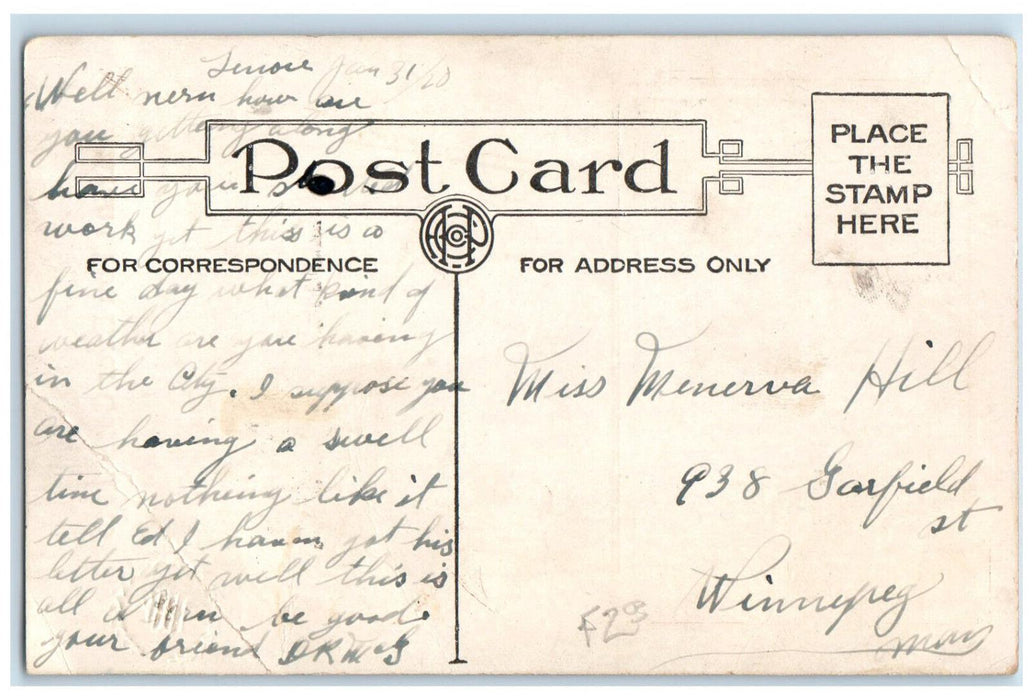 Lenore Jan 31/20
Well nern how are
you getting along
have you
work yet this is a
fine day what kind of
weather are you having
in the City. I suppose you
are having a swell
time nothing like it
tell Ed I haven got his
letter yet well this is
all nern be good.
your friend
Post Card
FOR CORRESPONDENCE
FOR ADDRESS ONLY
PLACE
THE
STAMP
HERE
Miss Menerva Hill
938 Garfield
st
Winnipeg
Man